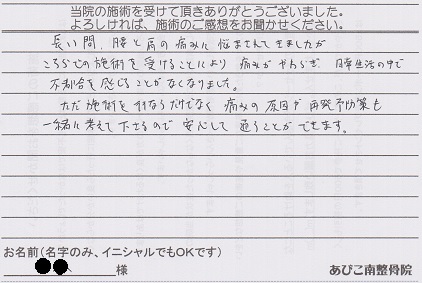 当院の施術を受けて頂きありがとうございました。
よろしければ、施術のご感想をお聞かせください。
長い間、腰と肩の痛みに悩まされてきましたが
こちらでの施術を受けることにより 痛みがやわらぎ 日常生活の中で
不都合を感じることがなくなりました。
ただ施術を行なうだけでなく 痛みの原因や 再発予防策も
一緒に考えて下さるので 安心して 通うことができます。
お名前(名字のみ、イニシャルでもOKです)
様
あびこ南整骨院